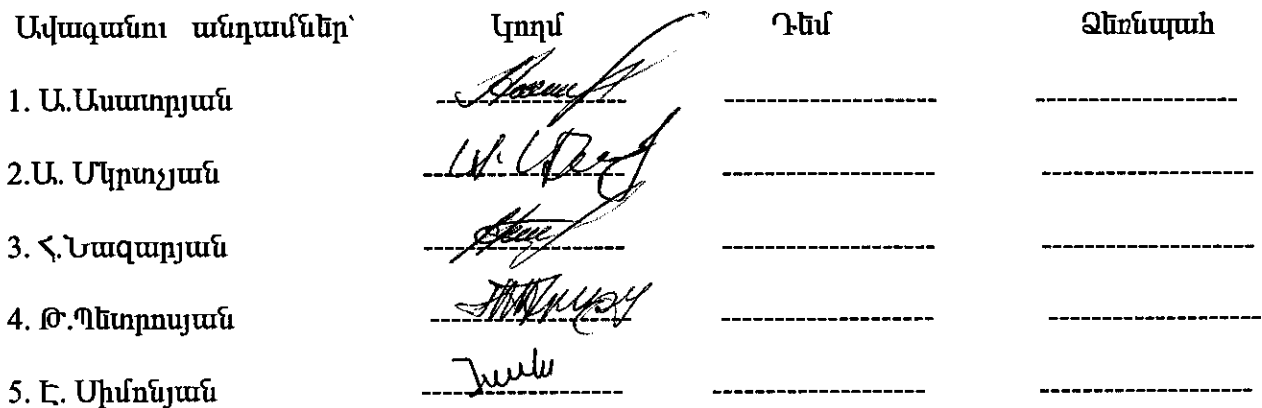 Ավագանու անդամներ՝ Կողմ Դեմ Ձեռնպահ
1. Ա.Ասատրյան
2.Ա. Մկրտչյան
3. Հ.Նազարյան
4. Թ.Պետրոսյան
5. Է. Սիմոնյան